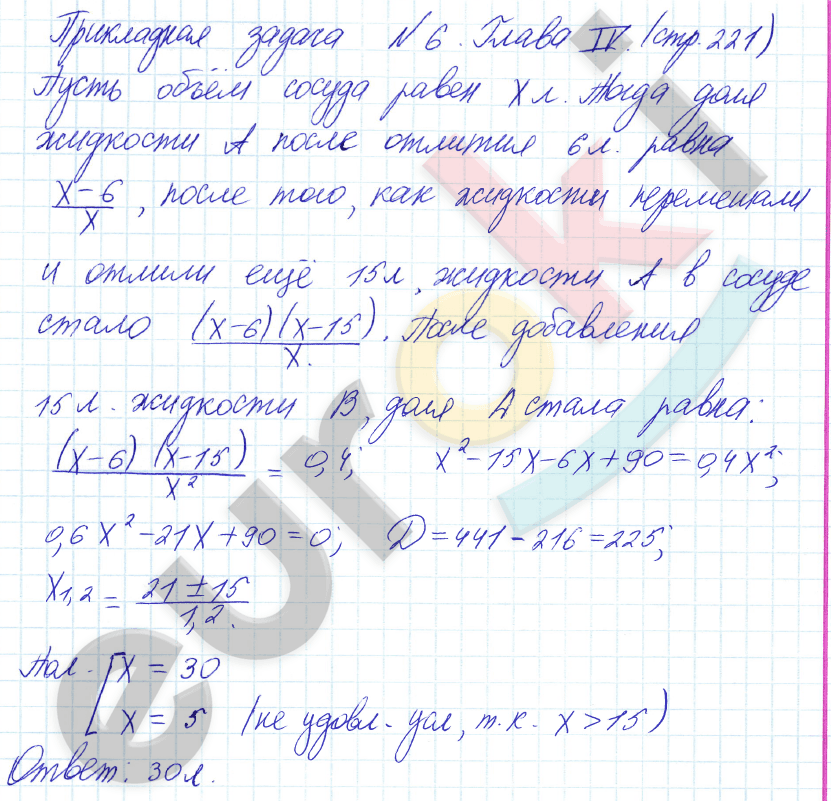 Прикладная задача № 6. Глава IV. (стр. 221)
Пусть объём сосуда равен x л. Тогда доля
жидкости A после отлития 6 л. равна
(x-6)/x, после того, как жидкости перемешали
и отлили ещё 15 л, жидкости A в сосуде
стало (x-6)(x-15)/x. После добавления
15 л. жидкости B, доля A стала равна:
(x-6)(x-15)/x² = 0,4; x²-15x-6x+90=0,4x²;
0,6x²-21x+90=0; D=441-216=225;
x1,2 = (21±15)/1,2.
Пол. [x = 30
x = 5 (не удовл. усл, т.к. x>15)
Ответ: 30 л.
euroki